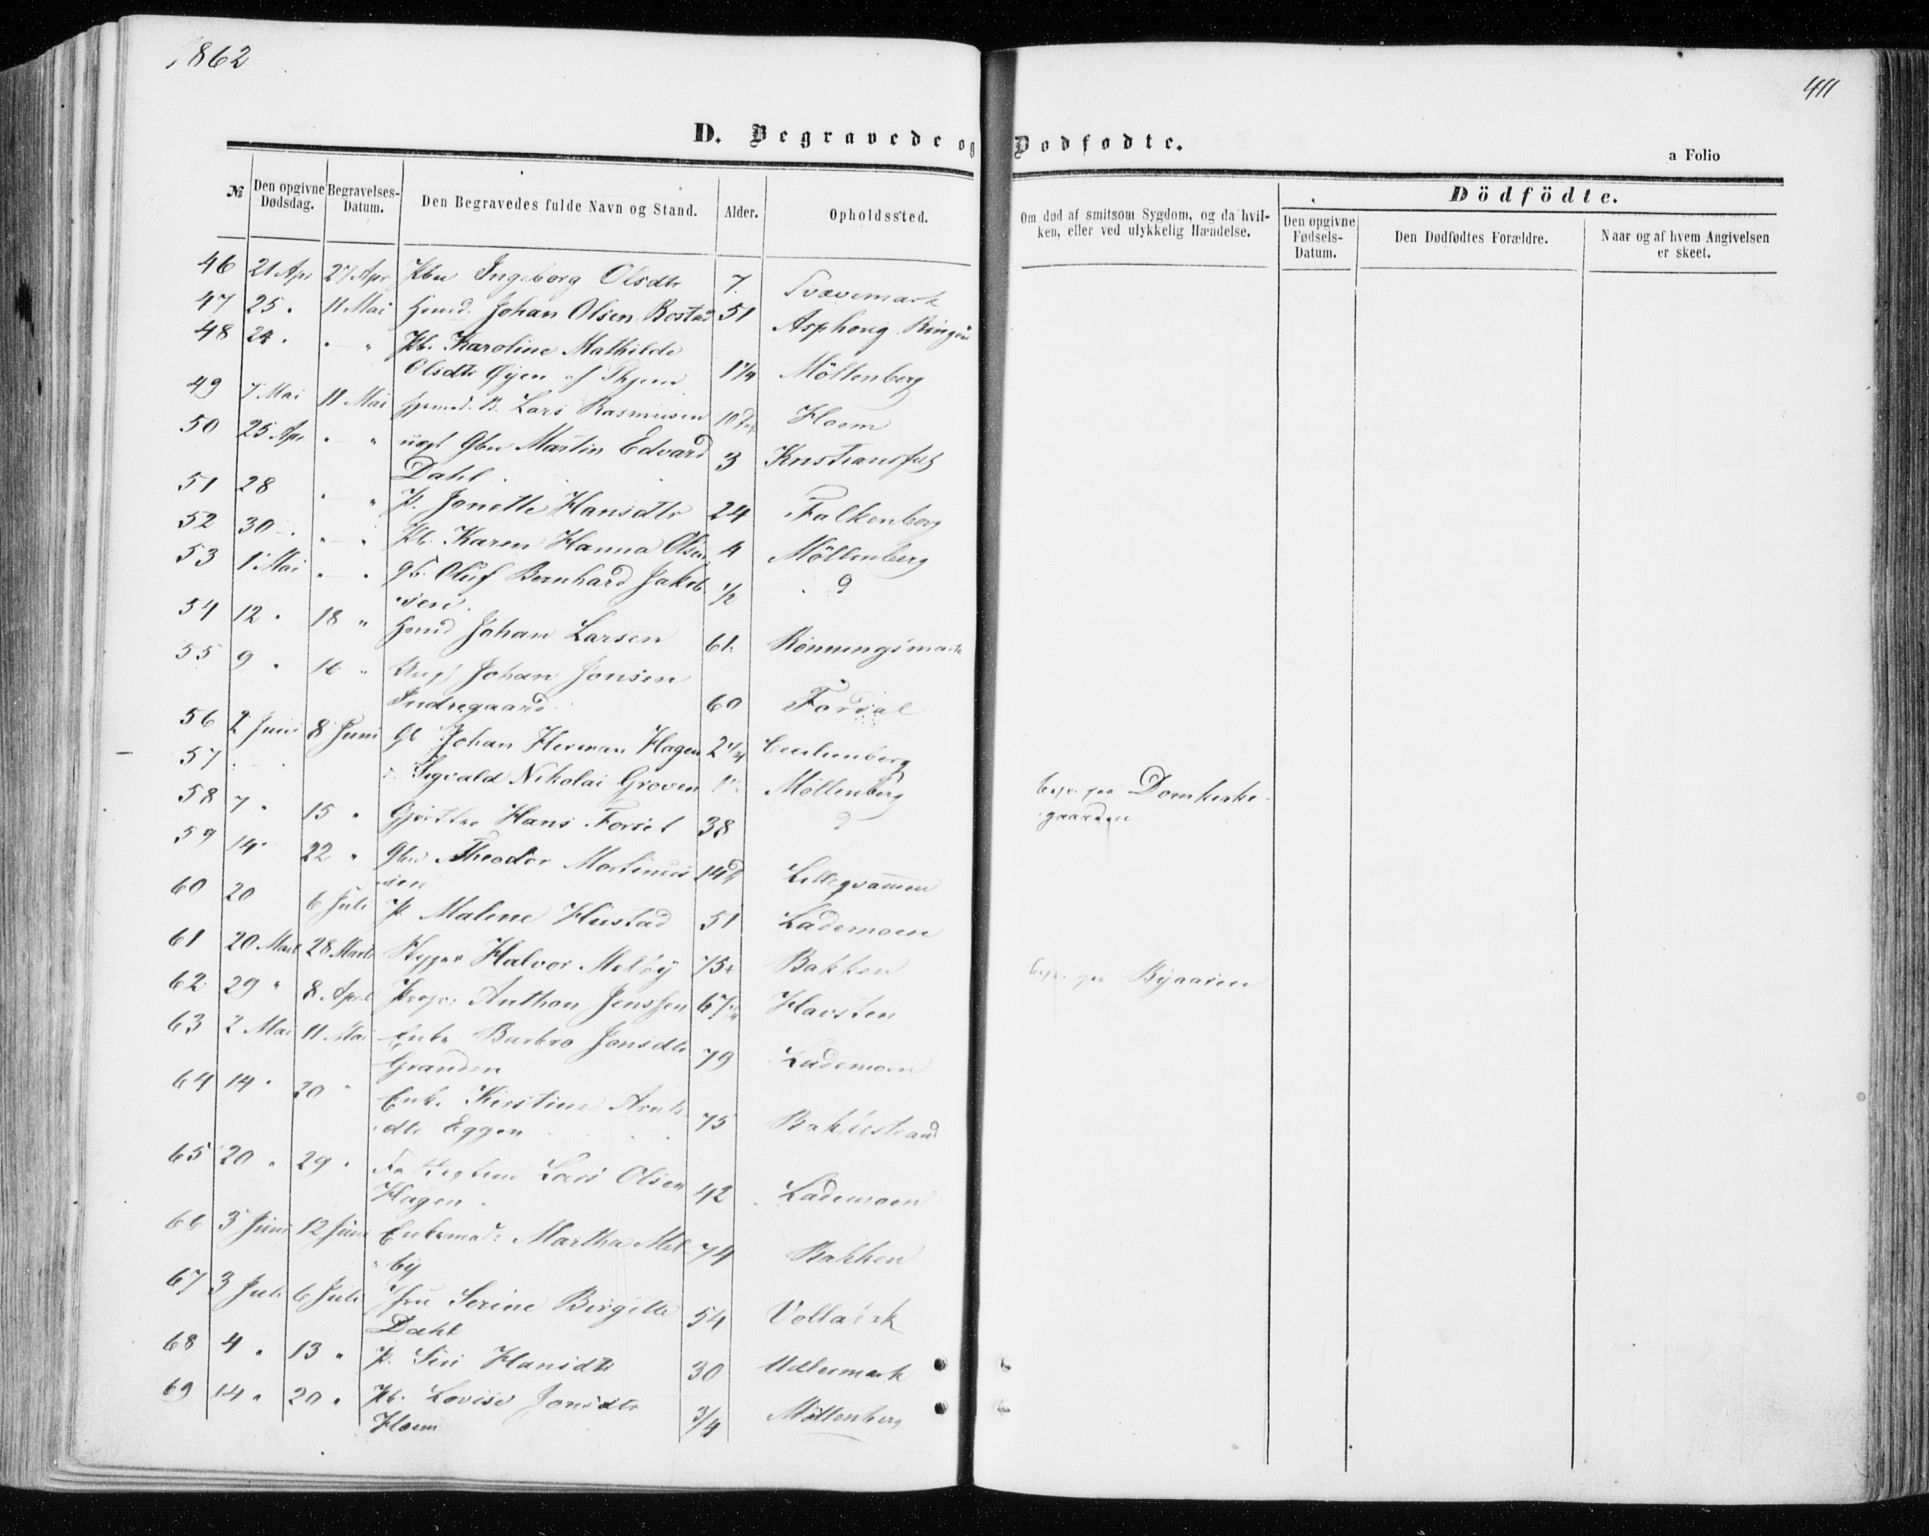 1862
411
D. Begravede og Dødfødte.
a Folio
№ Den opgivne Dødsdag. Begravelses-Datum. Den Begravedes fulde Navn og Stand. Alder. Opholdssted. Om død af smitsom Sygdom, og da hvilken, eller ved ulykkelig Hændelse.
Dödfödte.
Den opgivne Fødsels-Datum. Den Dødfødtes Forældre. Naar og af hvem Angivelsen er skeet.
46 21 Apr 27 Apr Pbn Ingeborg Olsdtr 7.
47 25 " 11 Mai Johan Olsen Bostad 51 Asphoug
48 24 " - " Pb. Karoline Mathilde
Olsdtr Øyen af 1 1/4 Möllenberg
49 7 Mai 11 Mai Lars Rasmusen Hoem
50 25 Apr " - " Gbn Martin Edvard
Dahl 3
51 28 " - " P. Jonette Hansdtr 24 Falkenborg
52 30 " - " Pb. Karen Hanna Olsen 4 Möllenberg
53 1 Mai " - " Gb. Oluf Bernhard Jakob-
sen. 1/2
54 12 " 18 " Johan Larsen 61. Rönningsmark
55 9 " 16 " Johan Jonsen
Indregaard 60
56 2 Juni 8 Juni Gb Johan Herman Hagen 2 1/4
57 Sigvald Nikolai Groven Möllenberg
58 7 " 15 " Hans Forset 38
Domkirke-
gaarden
59 14 22 " Gbn Theodor Martinus-
sen 14 d Lillegvammen
60 20 6 Juli P Malene Hustad 51 Lademoen
61 20 Marts 28 Marts Halvor Meløy 75 Bakken
62 29 " 8 April Anthon Jenssen 67 Havsten
63 2 Mai 11 Mai Enke Barbro Jonsdtr
Granden 79 Lademoen
64 14 " 20 " Enk. Kirstine Arnts-
dtr Eggen 75 Bakkestrand
65 20 " 29 " Lars Olsen
Hagen 42 Lademoen
66 3 Juni 12 Juni Enkemad: Martha Mel-
by 74 Bakken
67 3 Juli 6 Juli Jfru Serine Birgitte
Dahl 54
68 4 " 13 " P. Siri Hansdtr 30
69 14 " 20 " Pb. Lovise Jonsdtr
Hoem 3/4 Möllenberg